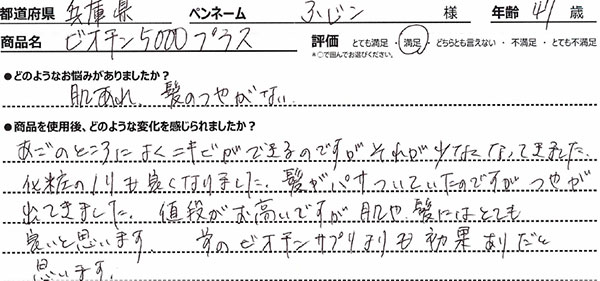 都道府県 兵庫県 ペンネーム ふじン 様 年齢 41 歳
商品名 ビオチン5000プラス 評価 とても満足・満足・どちらとも言えない・不満足・とても不満足
*○で囲んでお選びください。
●どのようなお悩みがありましたか?
肌あれ、髪のつやがない
●商品を使用後、どのような変化を感じられましたか?
あごのところによくニキビができるのですがそれが少なくなってきました。
化粧のノリも良くなりました。髪がパサついていたのですがつやが
出てきました。値段がお高いですが肌や髪にはとても
良いと思います。 のビオチンサプリよりも効果ありだと
思います。